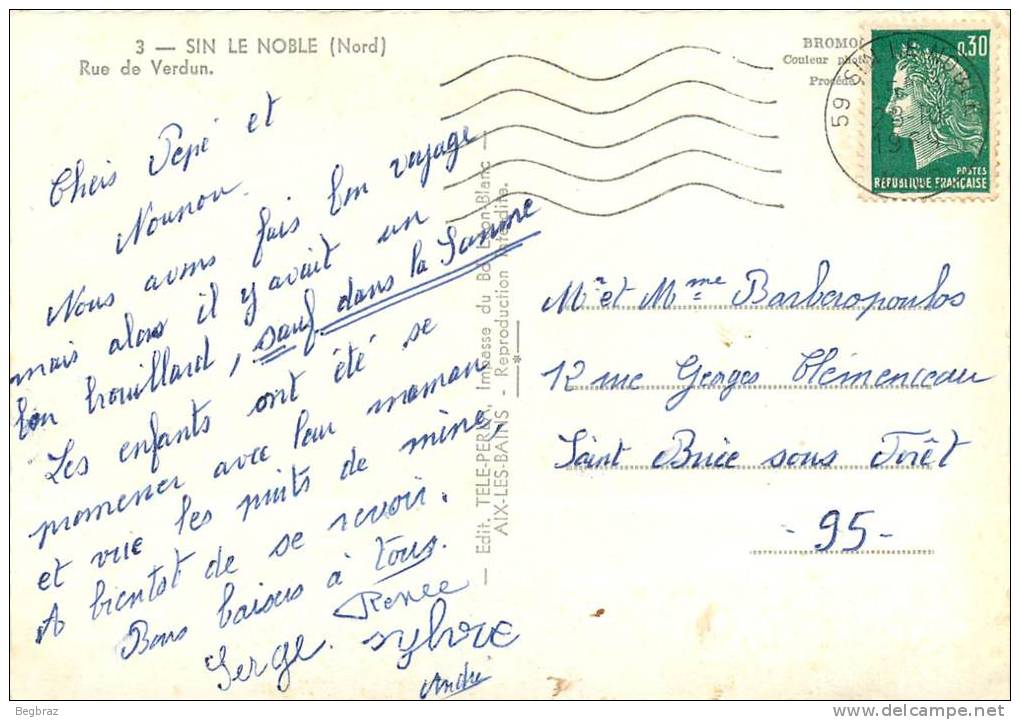 3 — SIN LE NOBLE (Nord)
Rue de Verdun.
Chers Pépé et
Nounou.
Nous avons fais bon voyage
mais alors il y avait un
bon brouillard, sauf dans la Somme
Les enfants ont été se
promener avec leur maman
et voie les puits de mine,
A bientot de se revoir.
Bons baisers à tous.
Renée
Serge. Sylvie
André
— Edit. TELE-PERRIX, Impasse du Bd Lyon-Blanc —
AIX-LES-BAINS - Reproduction interdite.
BROMO
Couleur
Procédé
59 SIN LE NOBLE
0,30
POSTES
REPUBLIQUE FRANÇAISE
Mr et Mme Barberopoulos
12 rue Georges Clémenceau
Saint Brice sous Forêt
- 95 -
Begbraz
www.delcampe.net